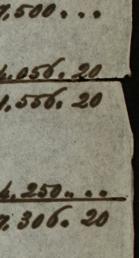 7.500...
4.056.20
1.556.20
4.250...
7.306.20